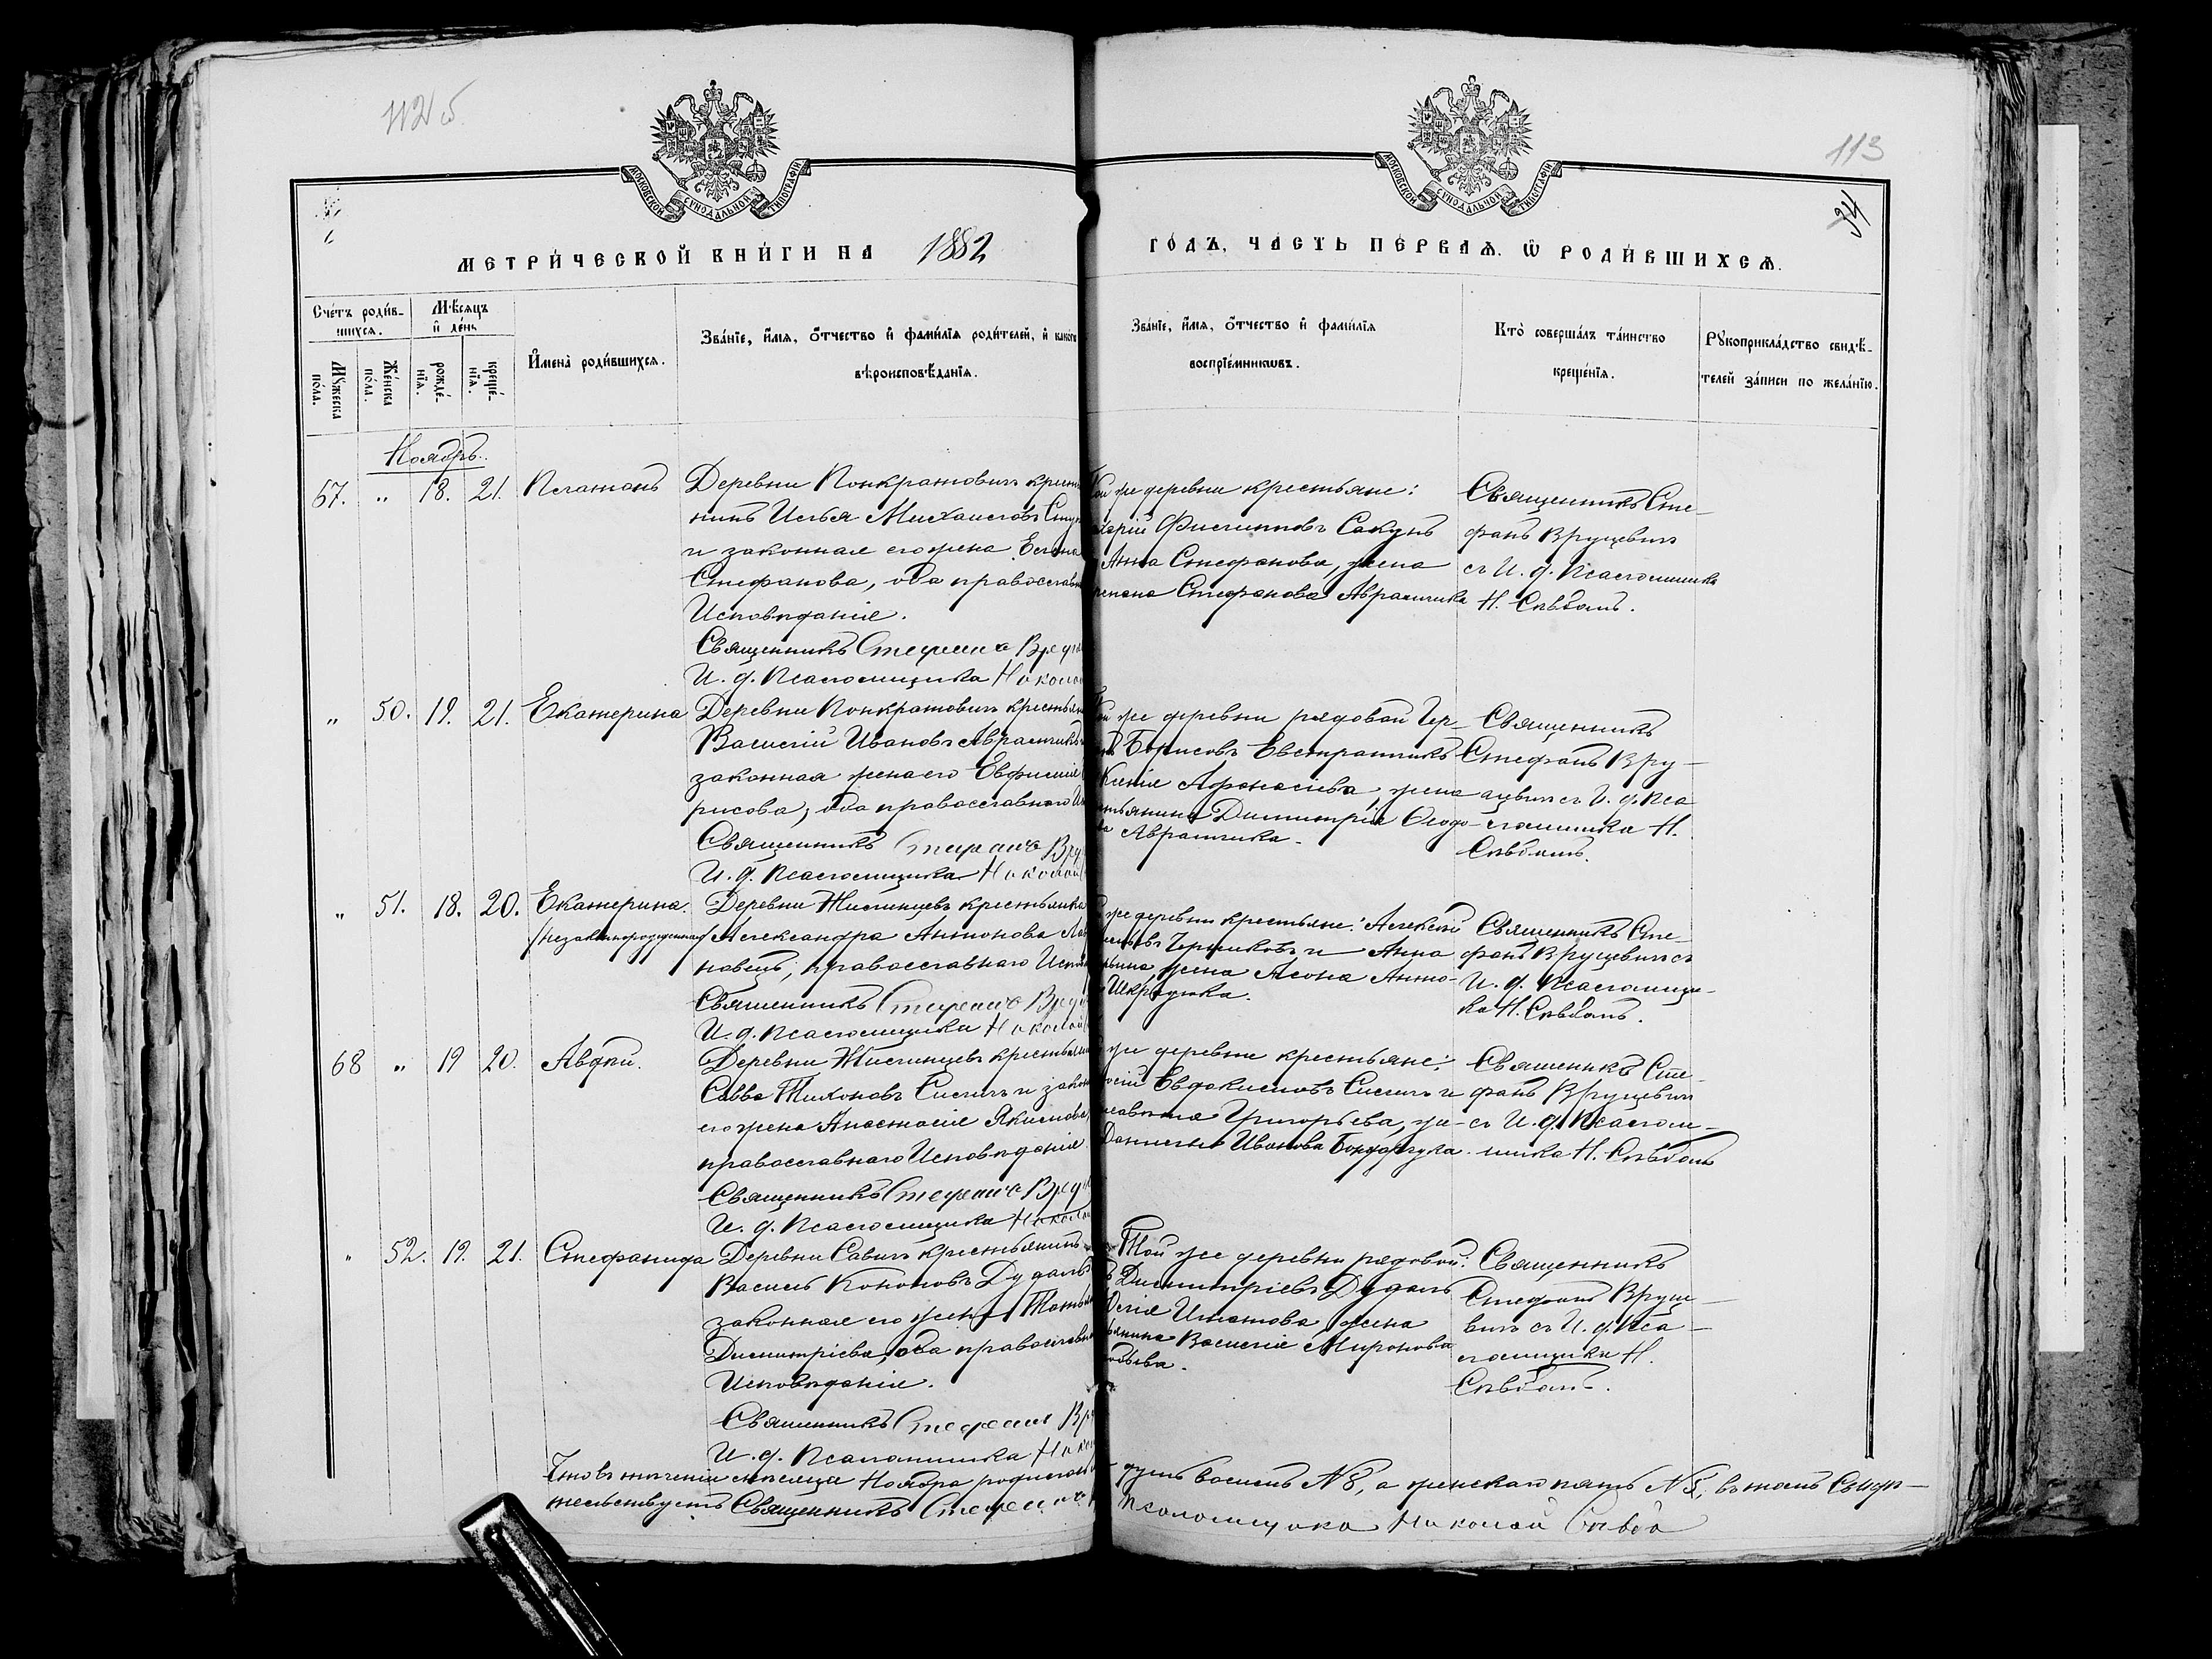 112 об.
113
34
МОСКОВСКОЙ СѴНОДАЛЬНОЙ ТИПОГРАФІИ
МОСКОВСКОЙ СѴНОДАЛЬНОЙ ТИПОГРАФІИ
МЕТРИ́ЧЕСКОЙ КНИ́ГИ НА 1882
ГО́ДЪ, ЧА́СТЬ ПЕ́РВАѦ. Ѽ РОДИ́ВШИХСѦ.
Сче́тъ роди́в-
шихсѧ.
Мꙋ́жеска
по́ла.
Же́нска
по́ла.
Мѣ́сѧцъ
и҆ де́нь
рожде́-
нїѧ.
креще́-
нїѧ.
И҆мена̀ роди́вшихсѧ.
Зва́нїе, и҆́мѧ, ѻ҆́тчество и҆ фами́лїѧ роди́телей, и҆ како́гѡ
вѣроисповѣ́данїѧ.
Зва́нїе, и҆́мѧ, ѻ҆́тчество и҆ фами́лїѧ
воспрїе́мникѡвъ.
Кто̀ соверша́лъ та́инство
креще́нїѧ.
Рꙋкоприкла́дство свидѣ́-
телей за́писи по жела́нїю.
Ноябрь.
67. " 18. 21. Платонъ
Деревни Понкратовичъ крестья
нинъ Илья Михаиловъ
и законная его жена Елена
Стефанова, оба православн
Исповѣданія.
Священникъ Стефанъ Вру
И. д. Псаломщика Никола
же деревни крестьяне:
Филиповъ Сакунъ
Анна Стефанова, жена
Стефанова Аврамчика
Священникъ Сте-
фанъ Вруцевичъ
съ И. д. Псаломщика
Н. Слѣбомъ.
" 50. 19. 21. Екатерина
Деревни Понкратовичъ крестьян
Василій Ивановъ Аврамчикъ
законная жена его Евфимія
рисова, оба православнаго И
Священникъ Стефанъ Вру
И. д. Псаломщика Николай
же деревни рядовой Гер-
Борисовъ Евстратчикъ
Ксенія Афонасіева, жена
Димитрія Ѳеодо-
Аврамчика.
Священникъ
Стефанъ Вру-
цевичъ съ И. д. Пса
ломщика Н.
Слѣбомъ.
" 51. 18. 20. Екатерина.
/незаконнорожденная/
Деревни Жилинцевъ крестьянка
Александра Антонова
новецъ, православнаго Испов
Священникъ Стефанъ Вру
И. д. Псаломщика Николай
же деревни крестьяне: Алексѣй
Черниковъ и Анна
жена Леона Анто-
Шкрадюка.
Священникъ Сте-
фанъ Вруцевичъ съ
И. д. Псаломщи-
ка Н. Слѣбомъ.
68 " 19 20. Авдѣй.
Деревни Жилинцевъ крестьянин
Савва Тихоновъ Силичъ и закон
его жена Анастасія Якимова,
православнаго Исповѣданія
Священникъ Стефанъ Вру
И. д. Псаломщика Никола
же деревни крестьяне:
Евдокимовъ Силичъ и
Григорьева, же-
Даниила Иванова Бондарчука.
Священикъ Сте-
фанъ Вруцевичъ
съ И. д. Псалом-
щика Н. Слѣбомъ
" 52. 19. 21. Стефанида
Деревни Савичъ крестьянинъ
Василь Кононовъ Дудаль
законная его жена Татья
Димитріева, оба православн
Исповѣданія.
Священникъ Стефанъ Вр
И. д. Псаломщика Никол
Той же деревни рядовой:
Димитріевъ Дудаль
Игнатова жена
Василія Миронова
Священникъ
Стефанъ Вруце-
вичъ съ И. д. Пса-
ломщика Н.
Слѣбомъ.
Что въ теченіи мѣсяца Ноября родилось
душъ восемь № 8, а женскаго пять № 5, въ томъ Свидѣ-
тельствуетъ Священникъ Стефанъ
Псаломщика Николай Слѣбо